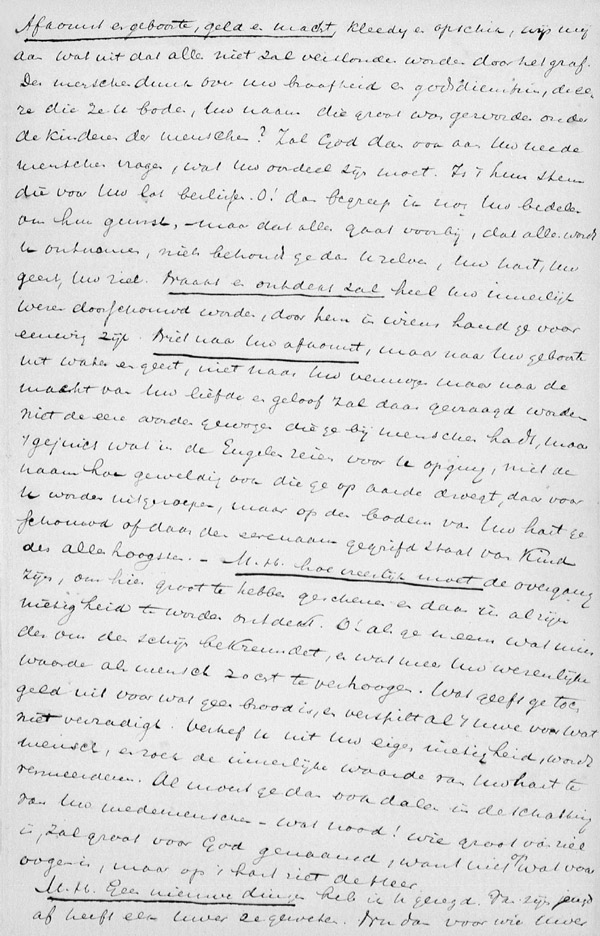 Afkomst en geboorte, geld en macht, kleedij en opschik, wijs mij
aan wat uit dat alles niet zal verslonden worden door het graf.
Der menschen dunk over Uw braafheid en godsdienstzin, de eer
ze die ze U boden, Uw naam die groot was geworden onder
de kinderen der menschen? Zal God dan ook aan Uw mede
menschen vragen, wat Uw oordeel zijn moet. Is 't hun stem
die voor Uw lot beslist. O! dan begreep ik nog Uw bedelen
om hun gunst, – maar dat alles gaat voorbij, dat alles wordt
U ontnomen, niets behoudt ge dan U zelven, Uw hart, Uw
geest, Uw ziel. Naakt en ontdekt zal heel Uw innerlijk
wezen doorschouwd worden, door hem in wiens hand ge voor
eeuwig zijt. Niet naar Uw afkomst, maar naar Uw geboorte
uit water en geest, niet naar Uw vermogen maar naar de
macht van Uw liefde en geloof zal daar gevraagd worden
niet de eer worden gewogen die ge bij menschen hadt, maar
't gejuich wat in de Engelen reien voor U opging, niet de
naam hoe geweldig ook die ge op aarde droegt, daar voor
U worden uitgeroepen, maar op den bodem van Uw hart ge
schouwd of daar de eerenaam gegrifd staat van Kind
des allerhoogsten. – M.H. hoe vreeslijk moet de overgang
zijn, om hier groot te hebben geschenen en daar in al zijn
nietigheid te worden ontdekt. O! als ge U eens wat min
der om den schijn bekreundet, en wat meer Uw wezenlijke
waarde als mensch zocht te verhoogen. Wat geeft ge toch
geld uit voor wat geen brood is, en verspilt al 't Uwe voor wat
niet verzadigt. Verhef U uit Uw eigen nietigheid, wordt
mensch, en zoek de innerlijke waarde van Uw hart te
vermeerderen. Al moest ge dan ook dalen in de schatting
van Uw medemenschen – wat nood! wie groot van ziel
is, zal groot voor God genaamd, want niet op wat voor
oogen is, maar op 't hart ziet de Heer.
M.H. Geen nieuwe dingen heb ik U gezegd. Van zijn jeugd
af heeft een Uwer ze geweten. Nu dan voor wie Uwer